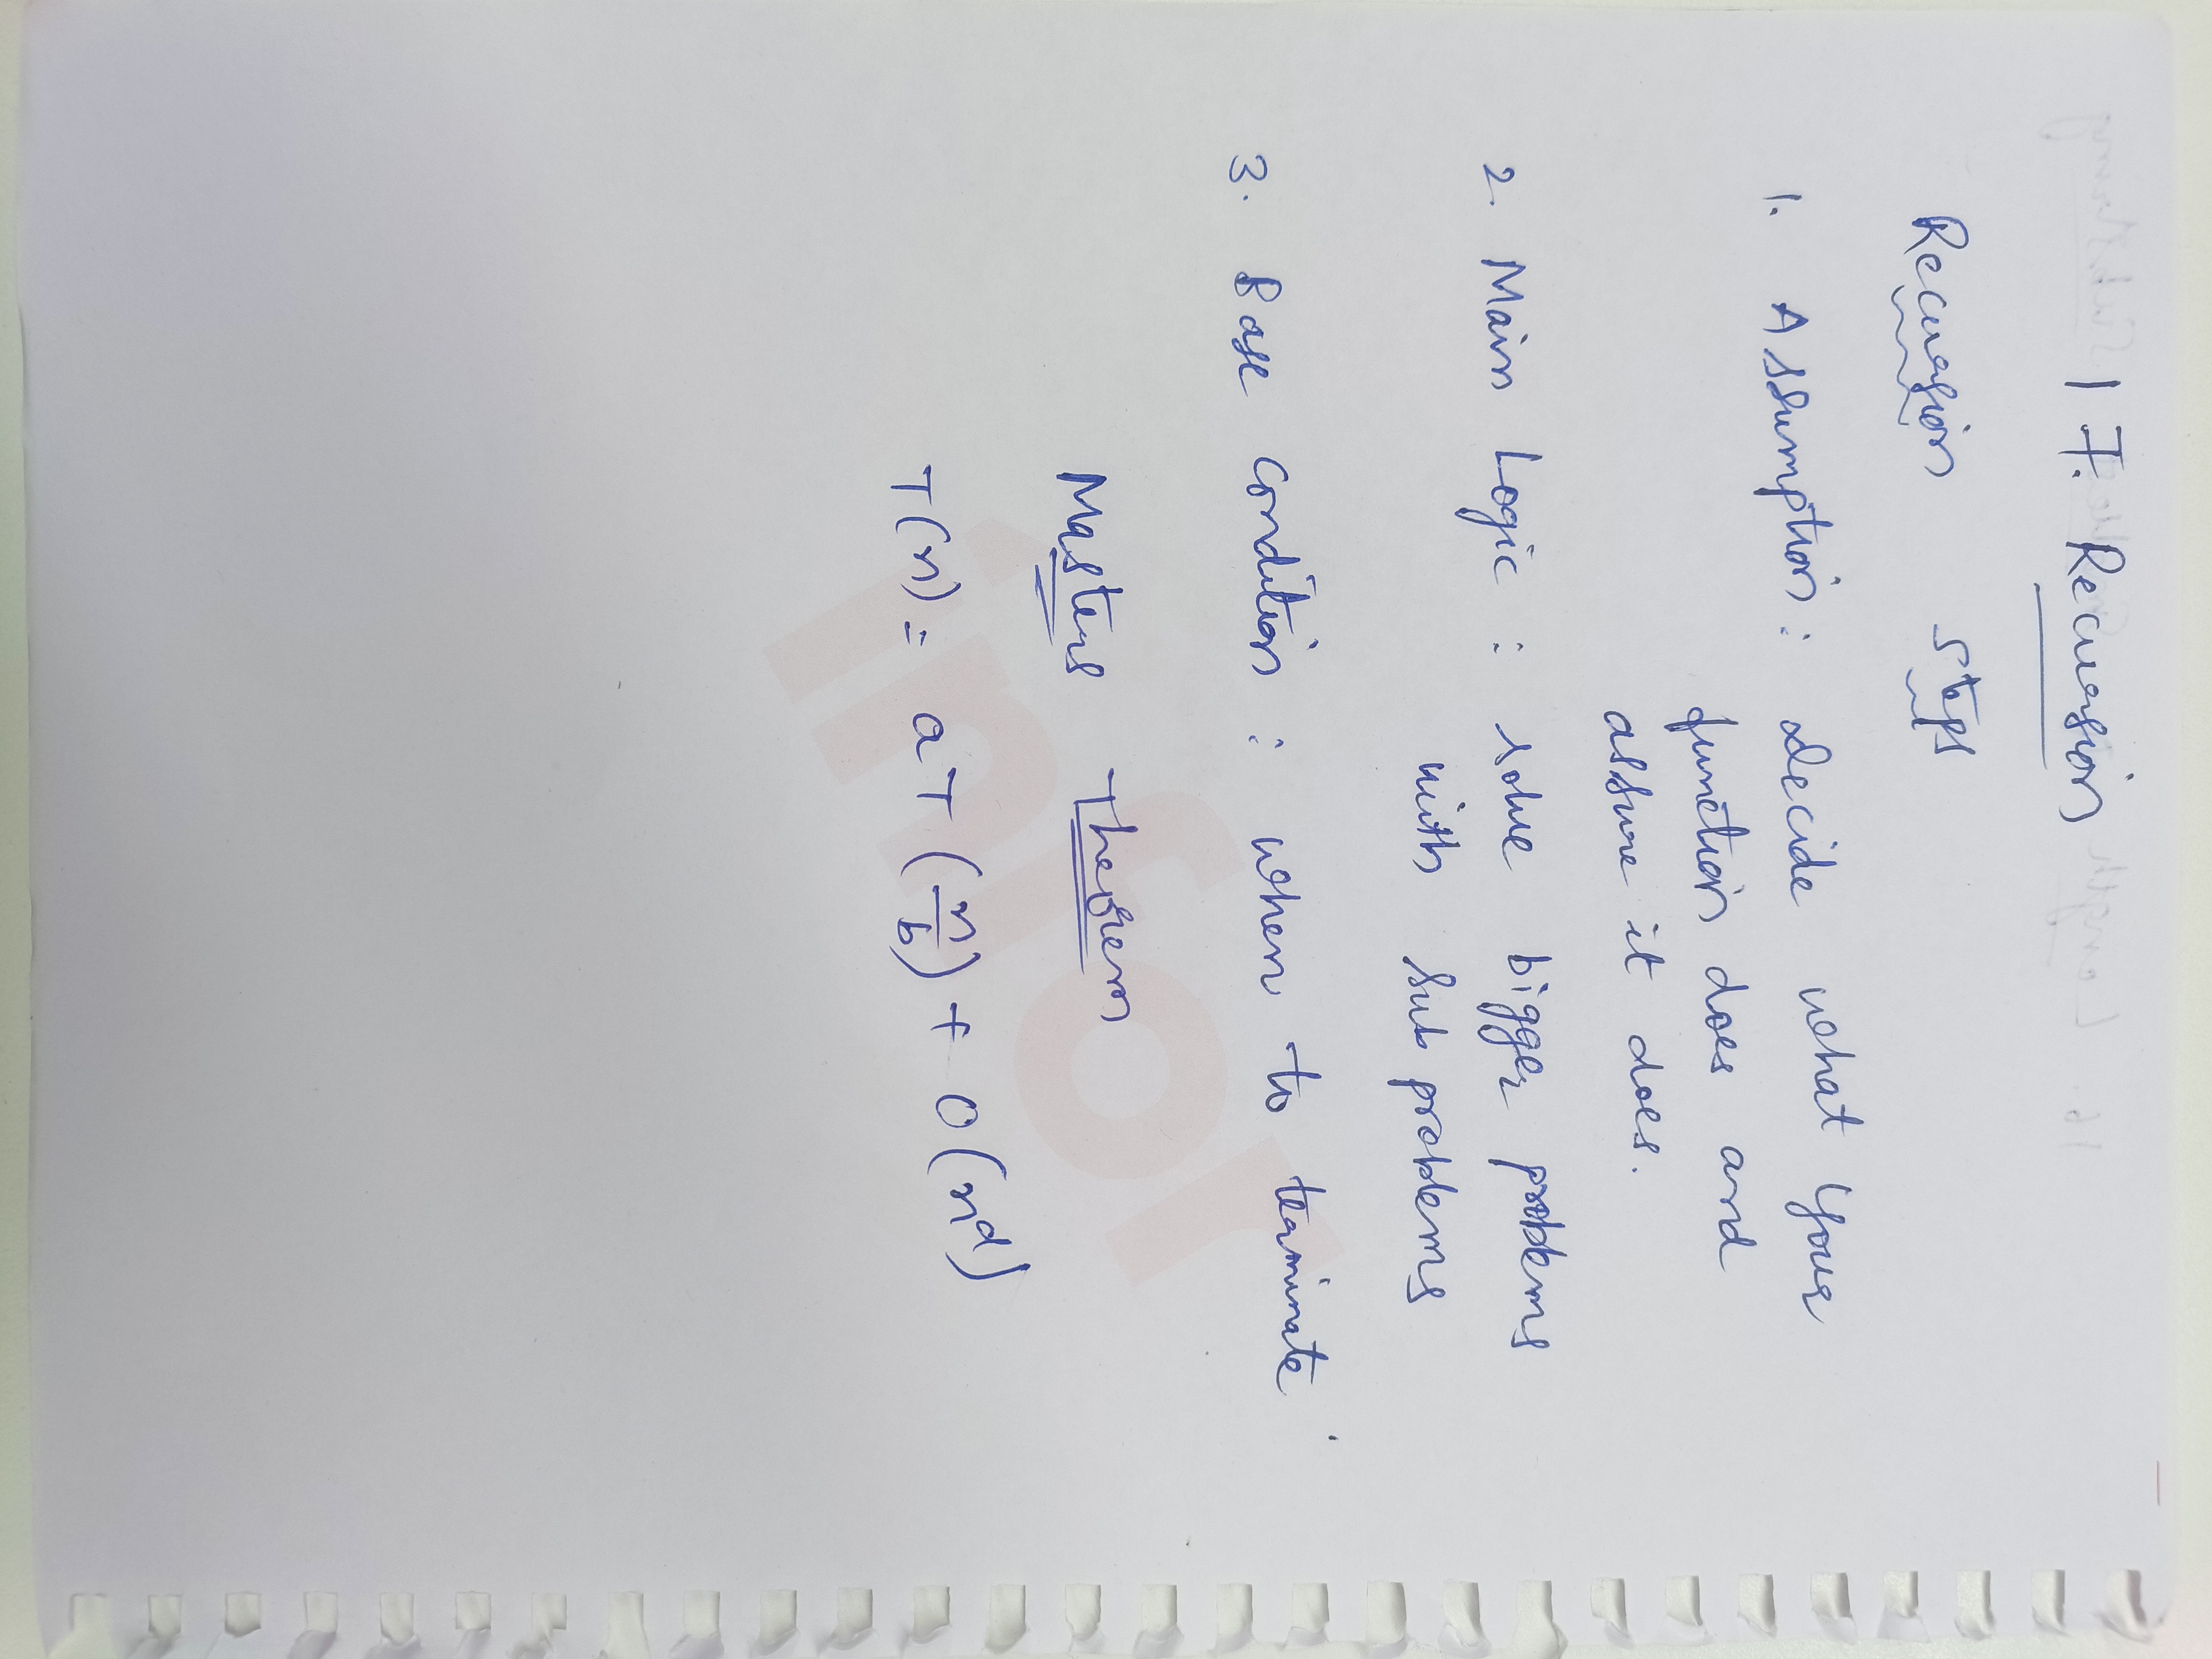 17. Recursion
Recursion Steps
1. Assumption : decide what your
function does and
assume it does.
2. Main Logic : solve bigger problems
with sub problems
3. Base Condition : when to terminate.
Masters Theorem
T(n) = aT(n/b) + O(n^d)
infor